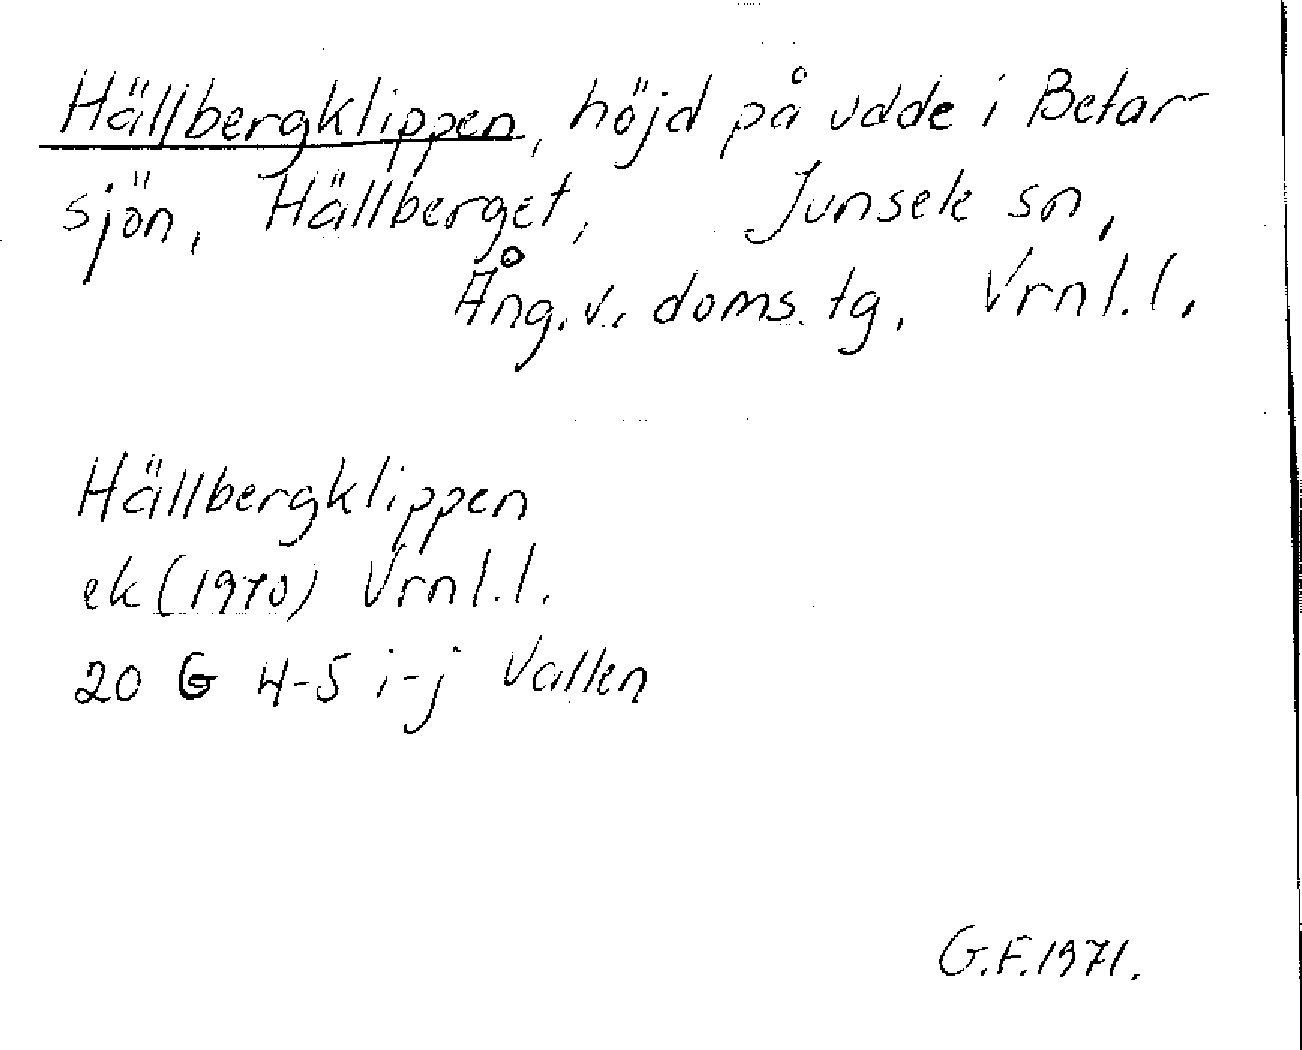 Hällbergklippen, höjd på udde i Betar-
sjön, Hällberget, Junsele sn,
Ång. v. doms. tg. Vrnl. l.
Hällbergklippen
ek (1970) Vrnl. l.
20 G 4-5 i-j Vallen
G.F. 1971.